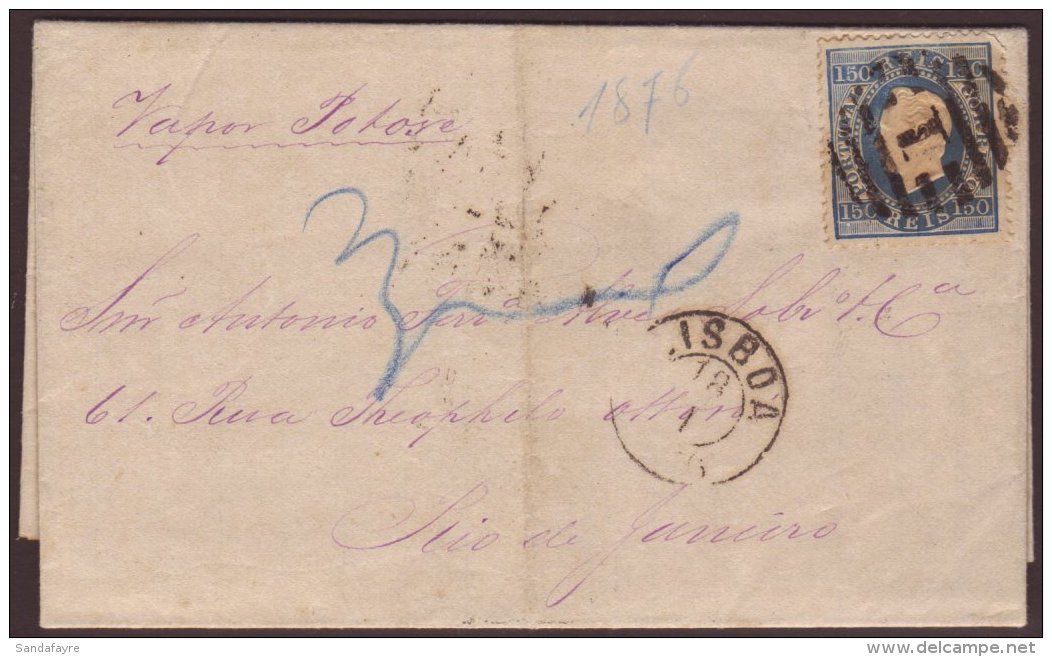 1876
Vapor Potose
150 REIS 150
PORTUGAL CORREIO
150 REIS 150
1
Snr Antonio Alves Sobro & Cª
61. Rua Theophilo Ottoni
Rio de Janeiro
LISBOA
18
1
6
Sandafayre
delcampe.net